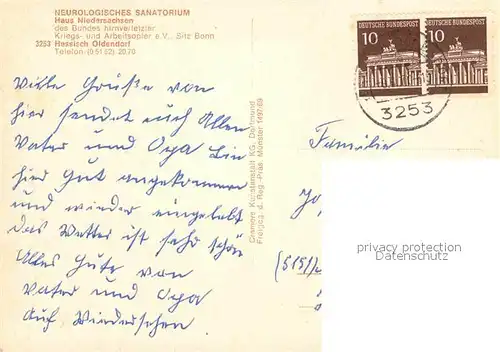 NEUROLOGISCHES SANATORIUM
Haus Niedersachsen
des Bundes hirnverletzter
Kriegs- und Arbeitsopfer e.V., Sitz Bonn
3253 Hessisch Oldendorf
Telefon (0 51 52) 20 70
Viele Grüße von
hier sendet euch Allen
Vater und Opa bin
hier gut angekommen
und wieder eingelebt
das Wetter ist sehr schön
Alles Gute von
Vater und Opa
Auf Wiedersehen
Cramers Kunstanstalt KG, Dortmund
Freigeg. d. Reg.-Präs. Münster
DEUTSCHE BUNDESPOST
10
DEUTSCHE BUNDESPOST
10
3253
Familie
privacy protection
Datenschutz